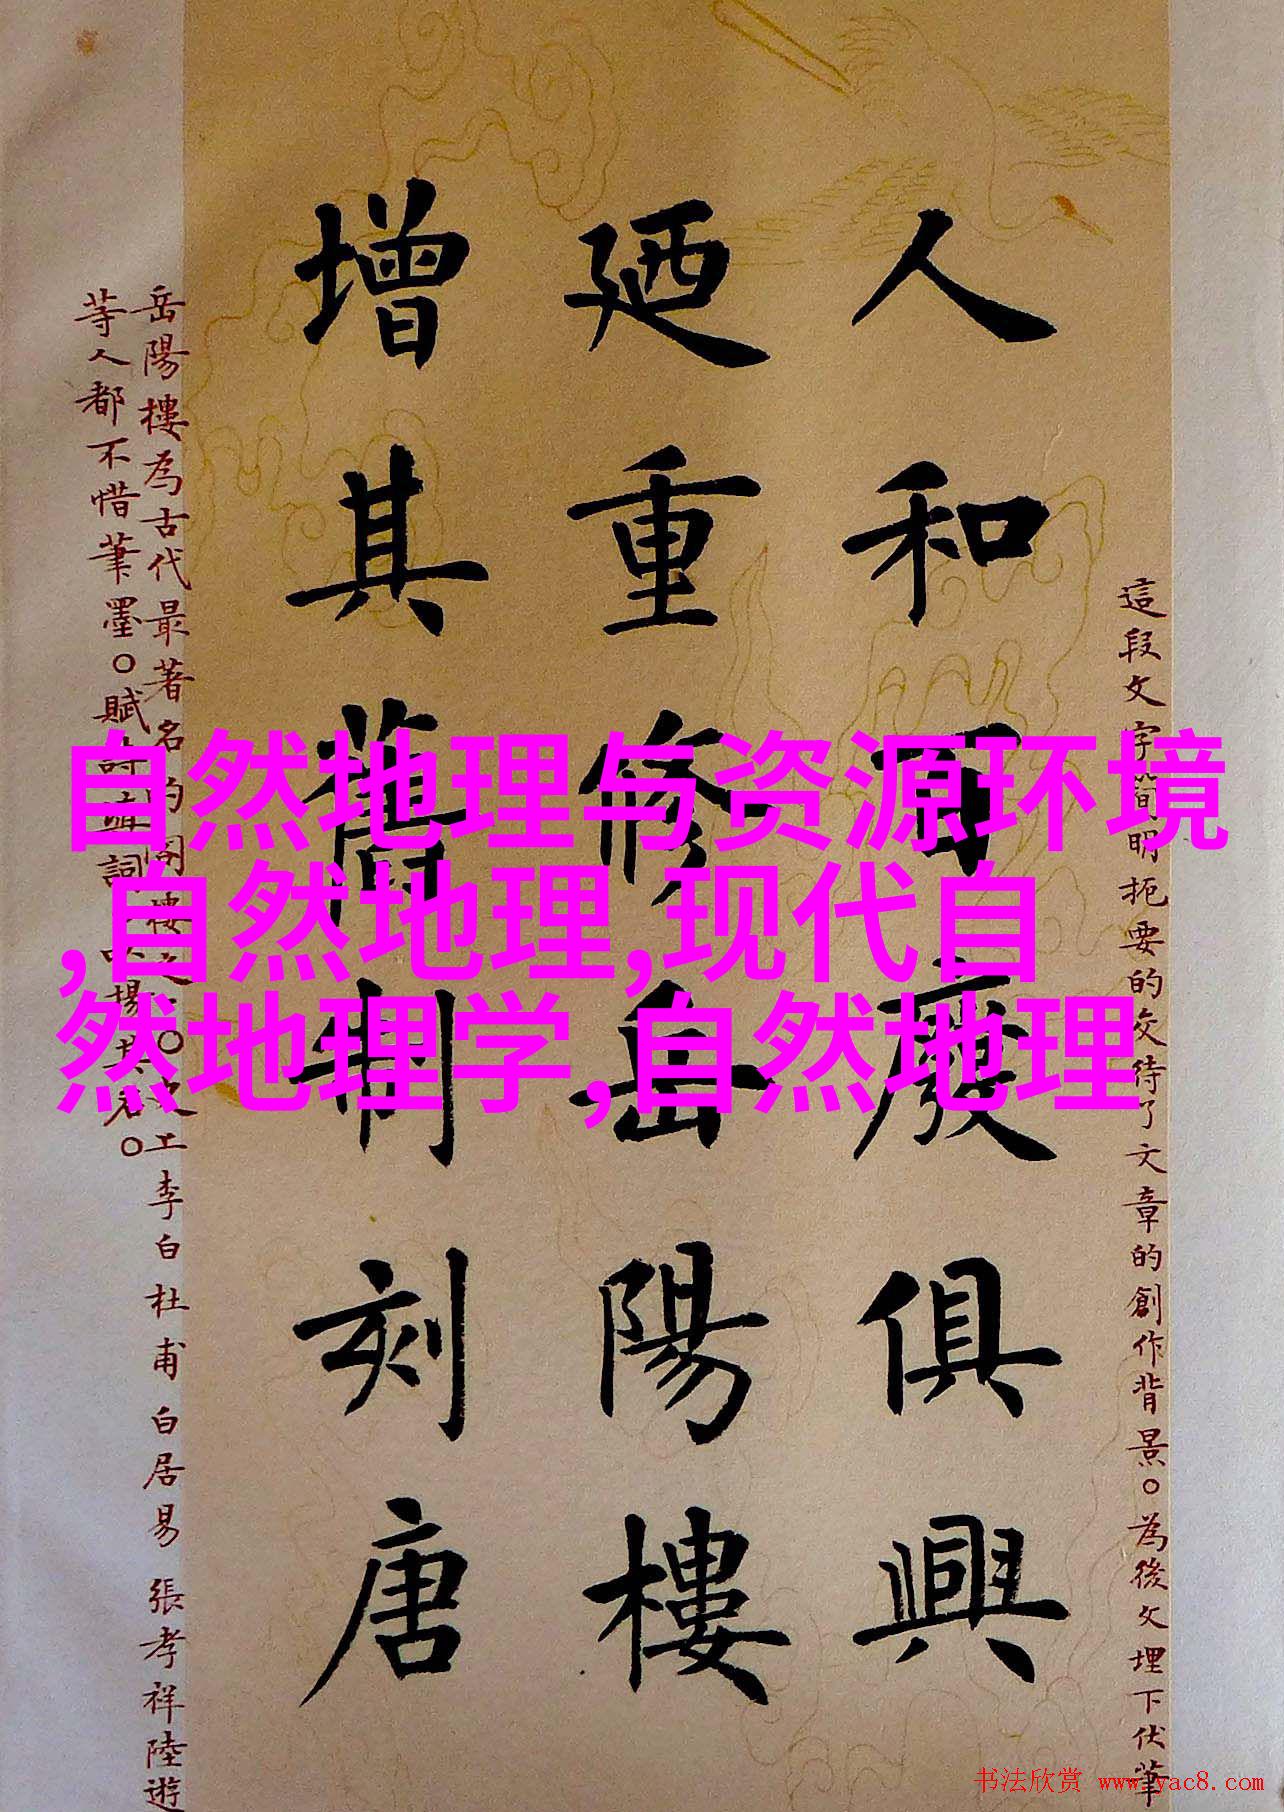 這段文字簡明扼要的交待了文章的創作背景。為後文埋下伏筆
人和百廢俱興
廼重修岳陽樓
增其舊制刻唐
岳陽樓為古代最著名的閣樓之。李白杜甫白居易張孝祥陸遊
等人都不惜筆墨。賦詩填詞以揚其名。
自然地理与资源环境
,自然地理,现代自
然地理学,自然地理
书法欣赏 www.yac8.com